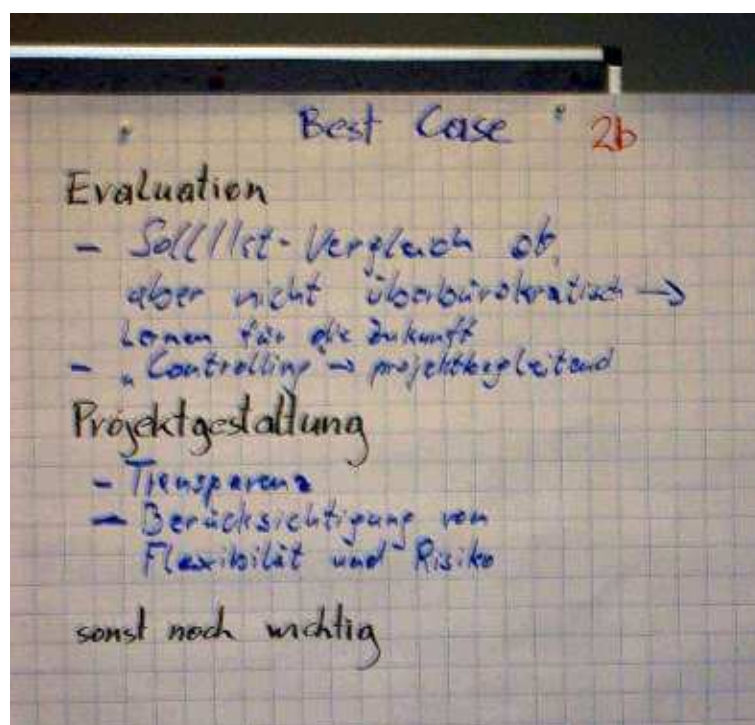 Best Case 2b
Evaluation
- Soll/Ist-Vergleich ok,
aber nicht überbürokratisch →
Lernen für die Zukunft
- "Controlling" → projektbegleitend
Projektgestaltung
- Transparenz
- Berücksichtigung von
Flexibilität und Risiko
sonst noch wichtig